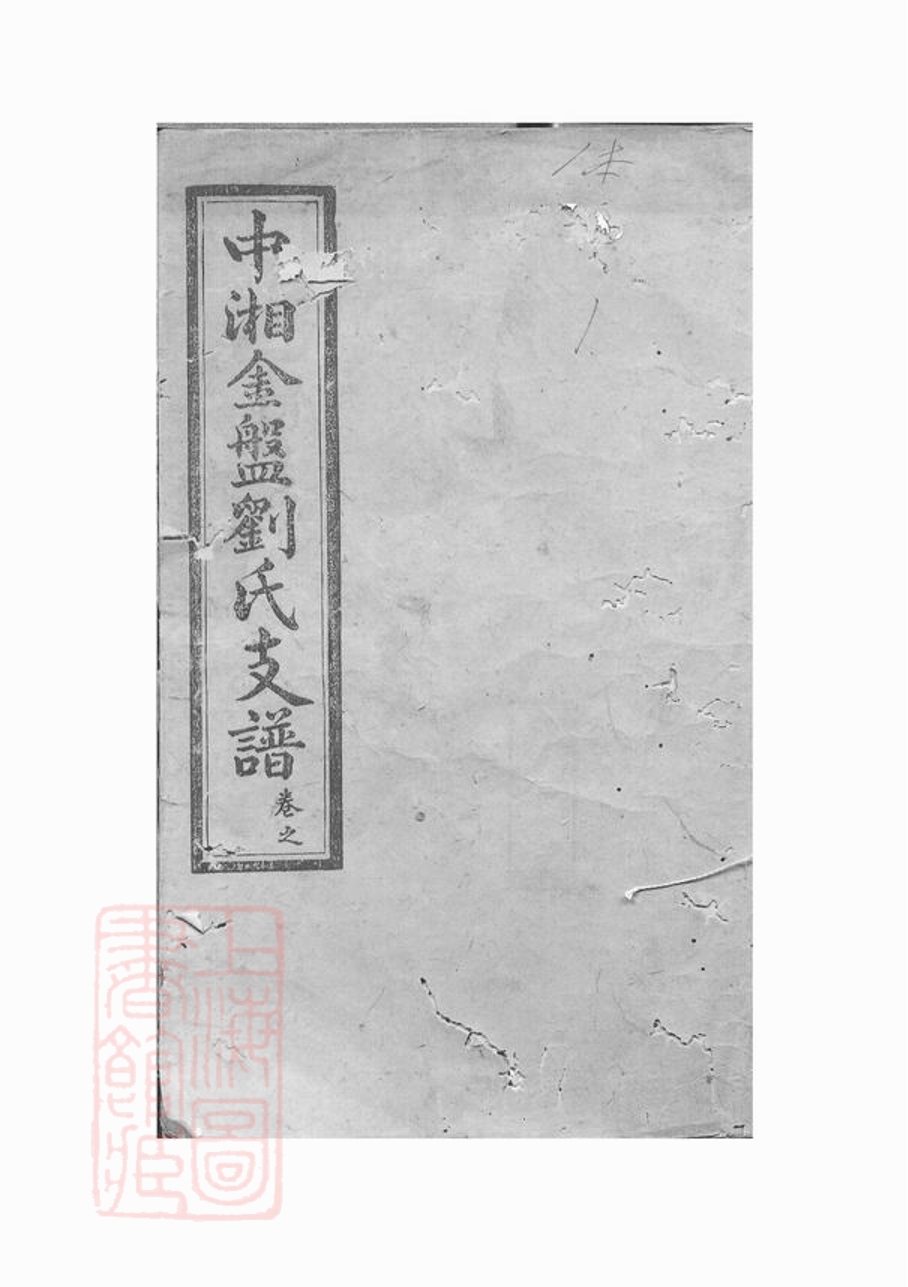 中湘金盤劉氏支譜
卷之
上海圖
書館藏